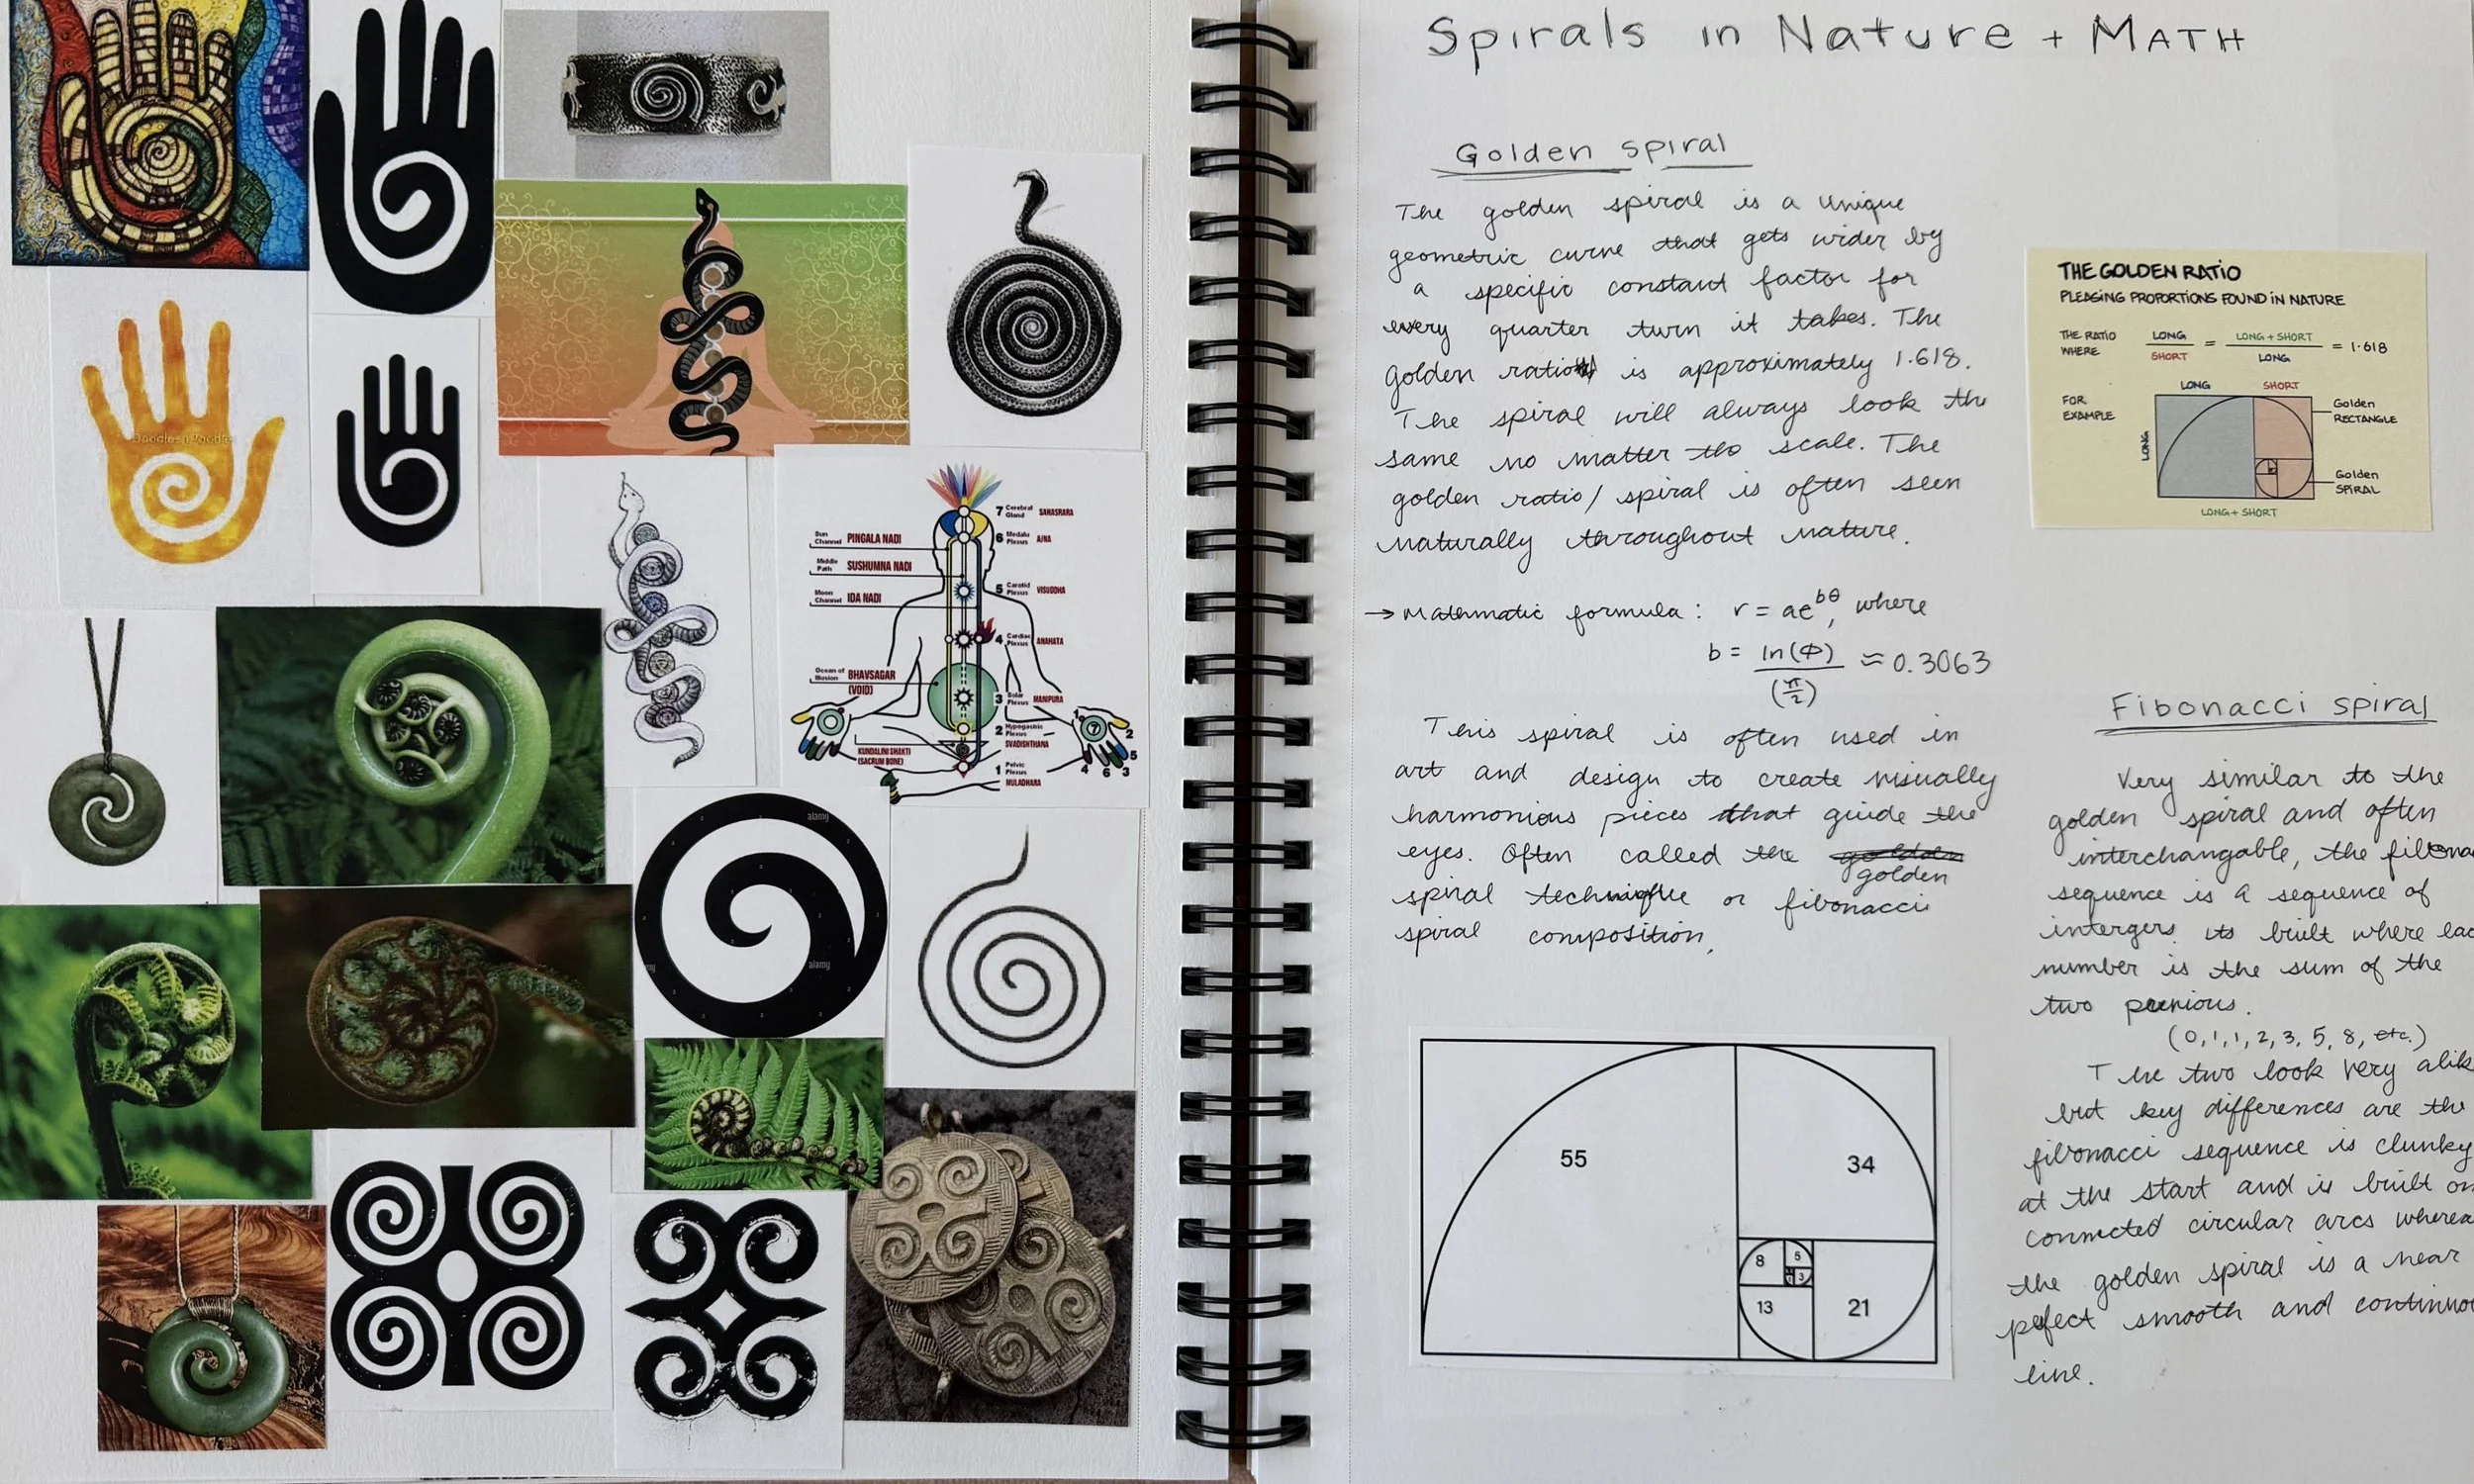 Spirals in Nature + MATH
Golden spiral
The golden spiral is a unique
geometric curve that gets wider by
a specific constant factor for
every quarter turn it takes. The
golden ratio is approximately 1.618.
The spiral will always look the
same no matter the scale. The
golden ratio/spiral is often seen
naturally throughout nature.
→ Mathmatic formula: r = ae^bθ, where
b = ln(Φ)/(π/2) ≈ 0.3063
This spiral is often used in
art and design to create visually
harmonious pieces that guide the
eyes. Often called the golden
golden
spiral technique or fibonacci
spiral composition.
THE GOLDEN RATIO
PLEASING PROPORTIONS FOUND IN NATURE
THE RATIO
WHERE
LONG/SHORT = LONG + SHORT/LONG = 1.618
FOR
EXAMPLE
LONG
SHORT
LONG
Golden
RECTANGLE
Golden
SPIRAL
LONG + SHORT
Fibonacci spiral
Very similar to the
golden spiral and often
interchangable, the fibona
sequence is a sequence of
intergers. its built where eac
number is the sum of the
two
(0,1,1,2,3,5,8, etc.)
The two look very alik
but key differences are the
fibonacci sequence is clunky
at the start and is built on
connected circular arcs wherea
the golden spiral is a near
pefect smooth and continuo
line.
55
34
8
5
3
13
21
Sun
Channel
PINGALA NADI
Middle
Path
SUSHUMNA NADI
Moon
Channel
IDA NADI
Ocean of
Illusion
BHAVSAGAR
(VOID)
KUNDALINI SHAKTI
(SACRUM BONE)
7 Cerebral
Gland
SAHASRARA
6
Plexus
AJNA
5 Carotid
Plexus
VISUDDHA
4 Cardiac
Plexus
ANAHATA
3 Solar
Plexus
MANIPURA
2 Hypogastric
Plexus
SVADISHTHANA
1 Pelvic
Plexus
MULADHARA
1
2
7
5
4 6 3
alamy
alamy